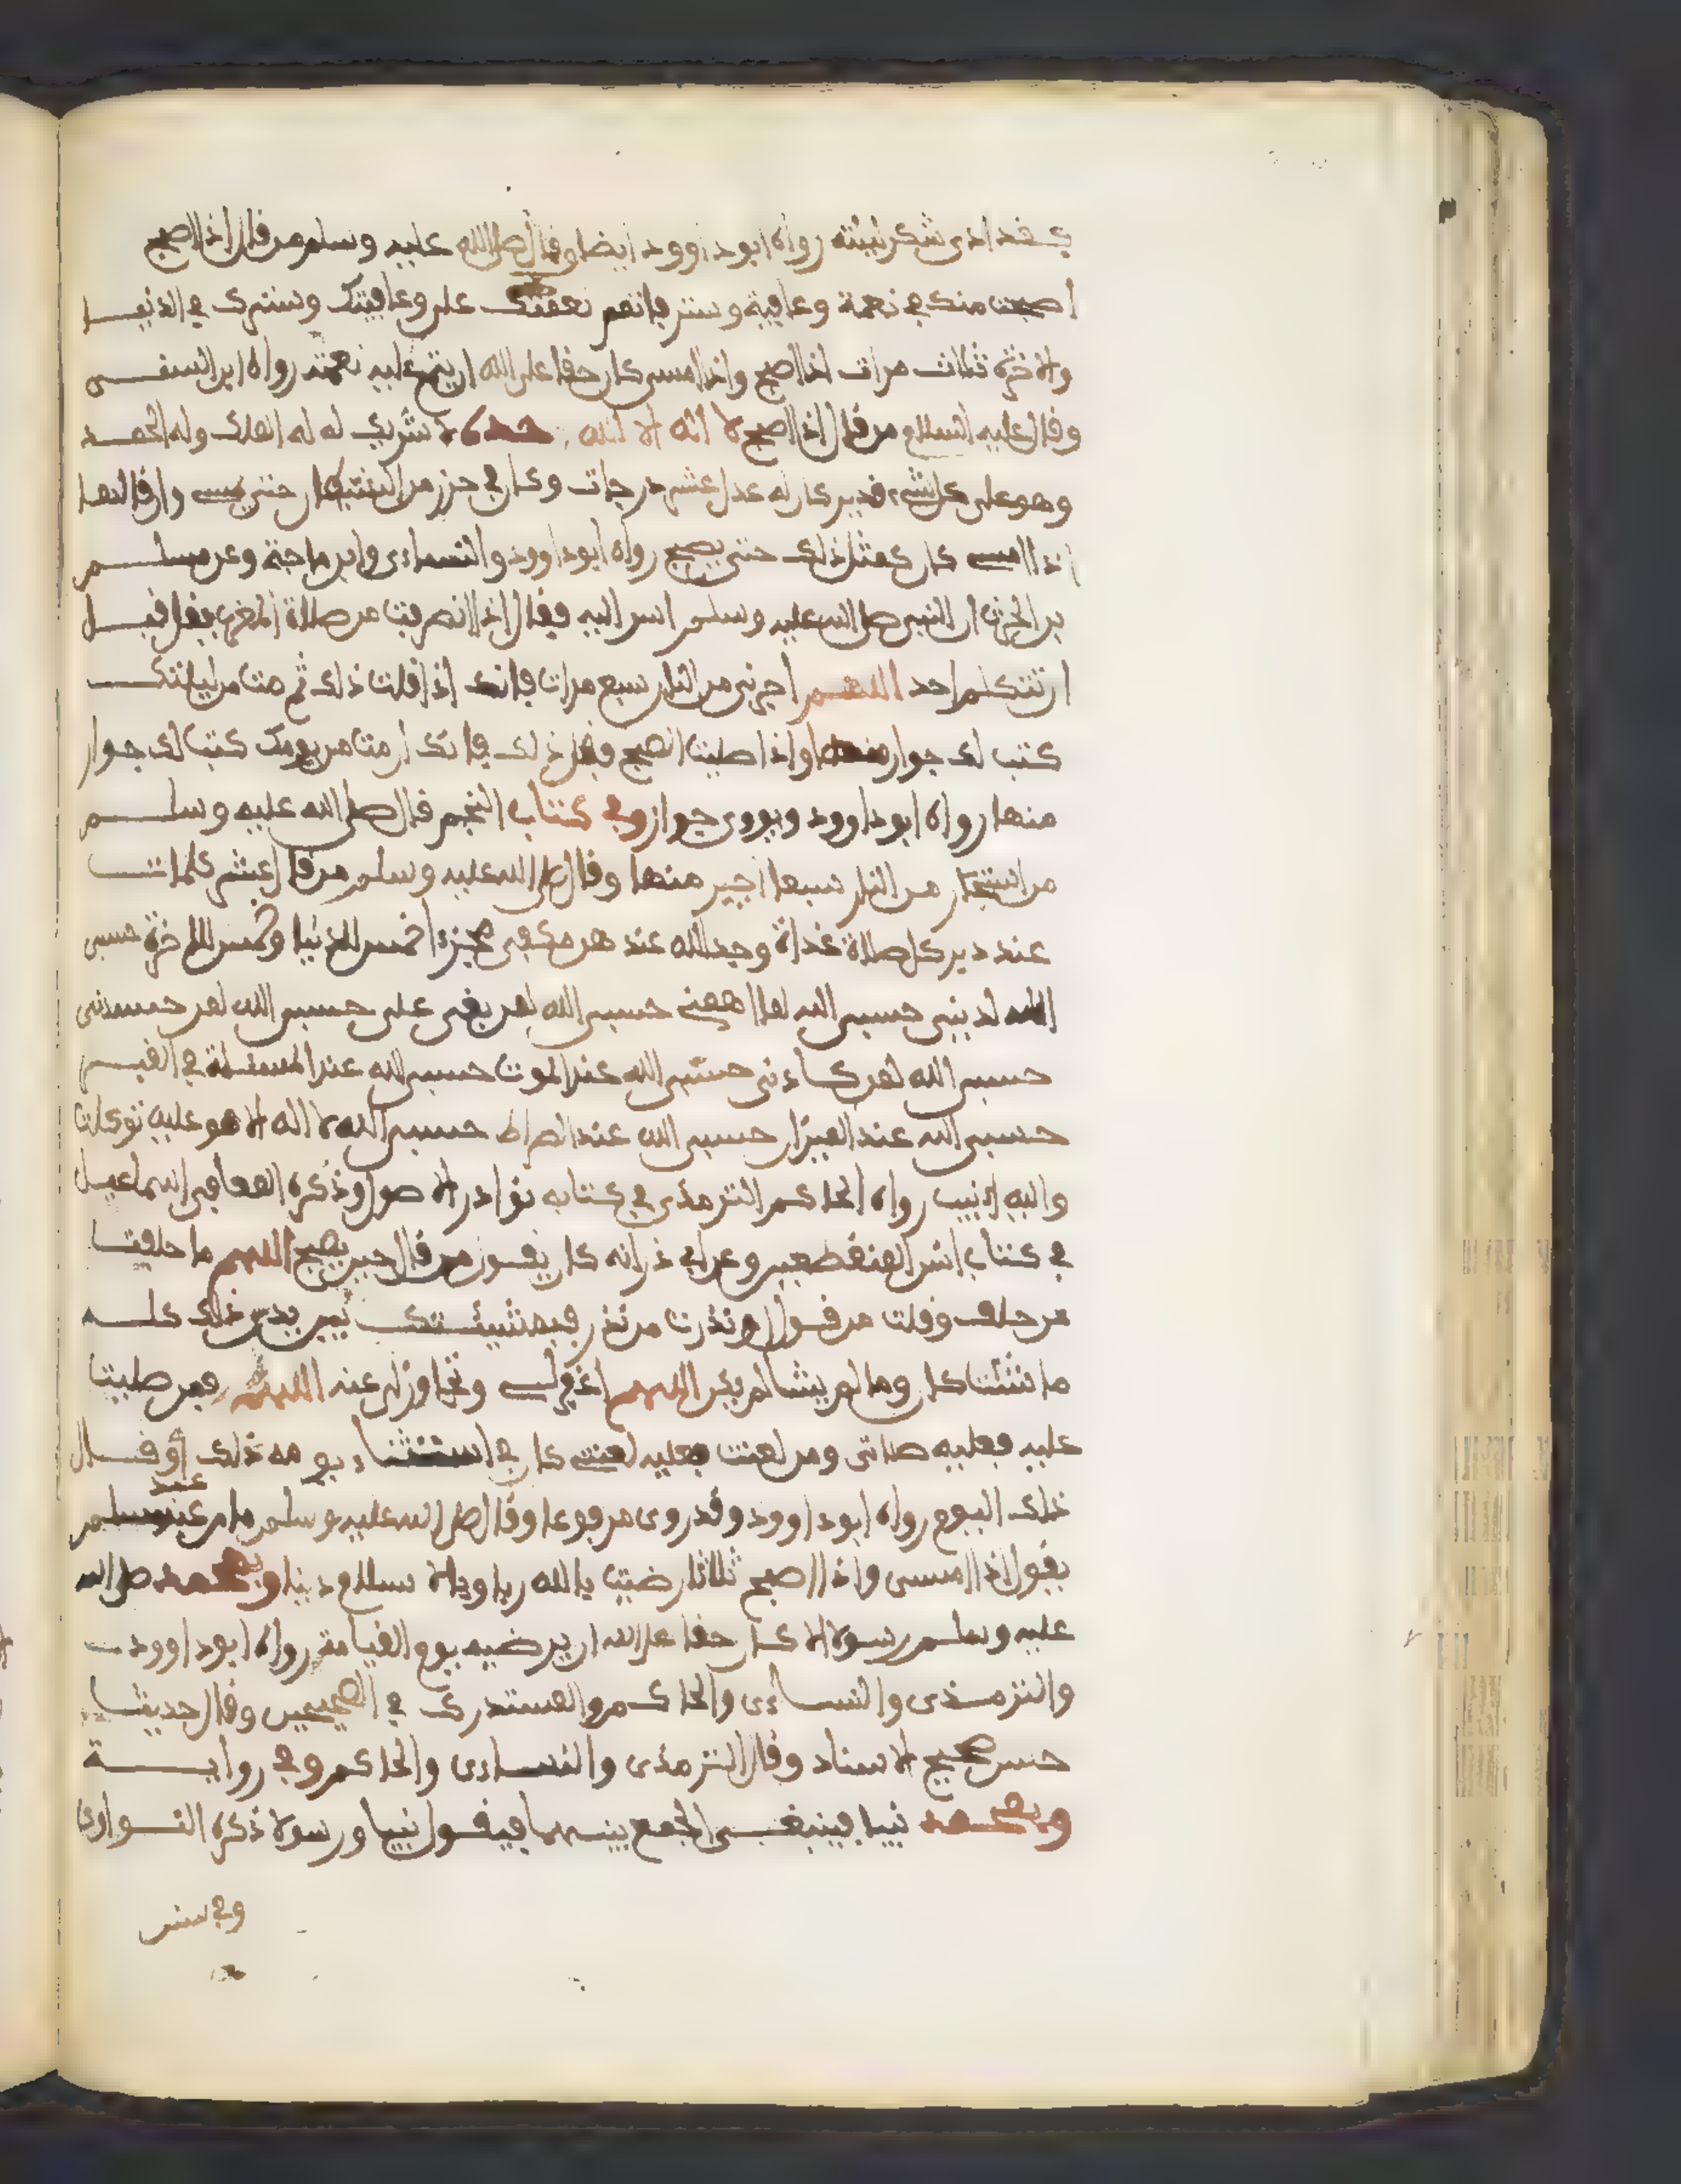 فقد ادى شكر ليلته رواه ابو داوود ايضا وقال صلى الله عليه وسلم من قال اذا اصبح
اصبحت منك في نعمة وعافية وستر فاتمم نعمتك على وعافيتك وسترك في الدنيا
والاخرة ثلاث مرات اذا اصبح واذا امسى كان حقا على الله ان يتم عليه نعمته رواه ابن السنى
وقال عليه السلام من قال اذا اصبح لا اله الا الله وحده لا شريك له له الملك وله الحمد
وهو على كل شيء قدير كان له عدل عشر درجات وكان في حرز من الشيطان حتى يمسي وان قالها
اذا امسى كان كمثل ذلك حتى يصبح رواه ابو داوود والنساءى وابن ماجة وعن مسلم
بن الحرث ان النبي صلى الله عليه وسلم اسر اليه فقال اذا انصرفت من صلاة المغرب فقل قبل
ان تتكلم احد اللهم اجرني من النار سبع مرات فانك اذا قلت ذلك ثم مت من ليلتك
كتب لك جوار منها واذا صليت الصبح فقل ذلك فانك ان مت من يومك كتب لك جوار
منها رواه ابو داوود ويروى جواز وفي كتاب النجم قال صلى الله عليه وسلم
من استجار من النار سبعا اجير منها وقال صلى الله عليه وسلم من قال عشر كلمات
عند دبر كل صلاة غداة وجد الله عند هن مكفى مجزءا خمس للدنيا وخمس للاخرة حسبى
الله لدينى حسبى الله لما اهمنى حسبى الله لمن بغى على حسبى الله لمن حسدنى
حسبى الله لمن كاءدنى حسبى الله عند الموت حسبى الله عند المسئلة في القبر
حسبى الله عند الميزان حسبى الله عند الصراط حسبى الله لا اله الا هو عليه توكلت
واليه انيب رواه الحاكم الترمذى في كتابه نوادر الاصول وذكره المعافى بن اسماعيل
في كتاب انس المنقطعين وعن ابى ذر انه كان يقول من قال حين يصبح اللهم ما حلفت
من حلف وقلت من قول او نذرت من نذر فبمشيئتك بين يدى ذلك كله
ما شئت كان وما لم يشا لم يكن اللهم اغفر لى وتجاوز لى عنه اللهم فمن صليت
عليه فعليه صلاتى ومن لعنت فعليه لعنتى كان في استثناء يومه ذلك او قال
ذلك اليوم رواه ابو داوود وقد روى مرفوعا وقال صلى الله عليه وسلم ما من عبد مسلم
يقول اذا امسى واذا اصبح ثلاثا رضيت بالله ربا وبالاسلام دينا وبمحمد صلى الله
عليه وسلم رسولا الا كان حقا على الله ان يرضيه يوم القيامة رواه ابو داوود
والترمذى والنساءى والحاكم والمستدرك في الصحيحين وقال حديث
حسن صحيح الاسناد وقال الترمذى والنساءى والحاكم وفي رواية
وبمحمد نبيا فينبغى الجمع بينهما فيقول نبيا ورسولا ذكره النواوى
وفي سنن